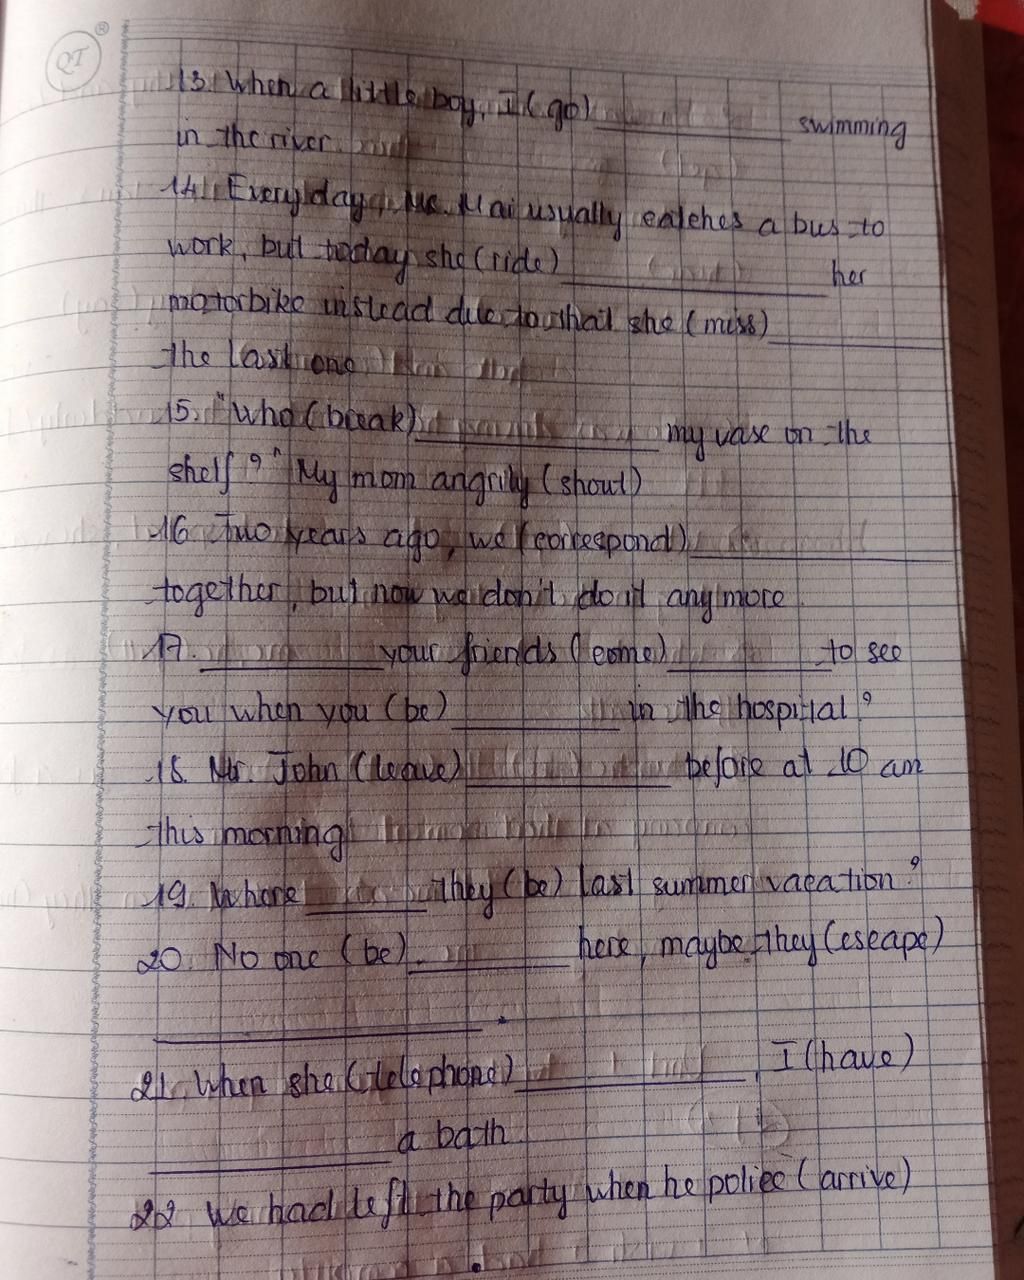 QT ®
13. When a little boy, I (go) __________ swimming
in the river
14. Every day, Ms. Mai usually catches a bus to
work, but today she (ride) __________ her
motorbike instead due to that she (miss) __________
the last one
15. "Who (break) __________ my vase on the
shelf?" My mom angrily (shout)
16 Two years ago, we (correspond) __________
together, but now we don't do it any more
17. __________ your friends (come) __________ to see
you when you (be) __________ in the hospital?
18. Mr. John (leave) __________ before at 10 am
this morning
19. Where ______ they (be) last summer vacation?
20. No one (be) __________ here, maybe they (escape)
__________.
21. When she (telephone) __________, I (have)
__________ a bath
22 We had left the party when he police (arrive)